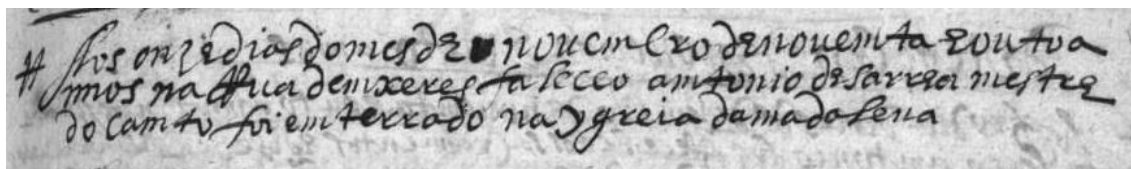 Aos onze dias do mes de novembro de novemta e outo a
nnos na Rua de mxeres faleceo amtonio de sarrea mestre
do camto foi emterrado na ygreia da madalena